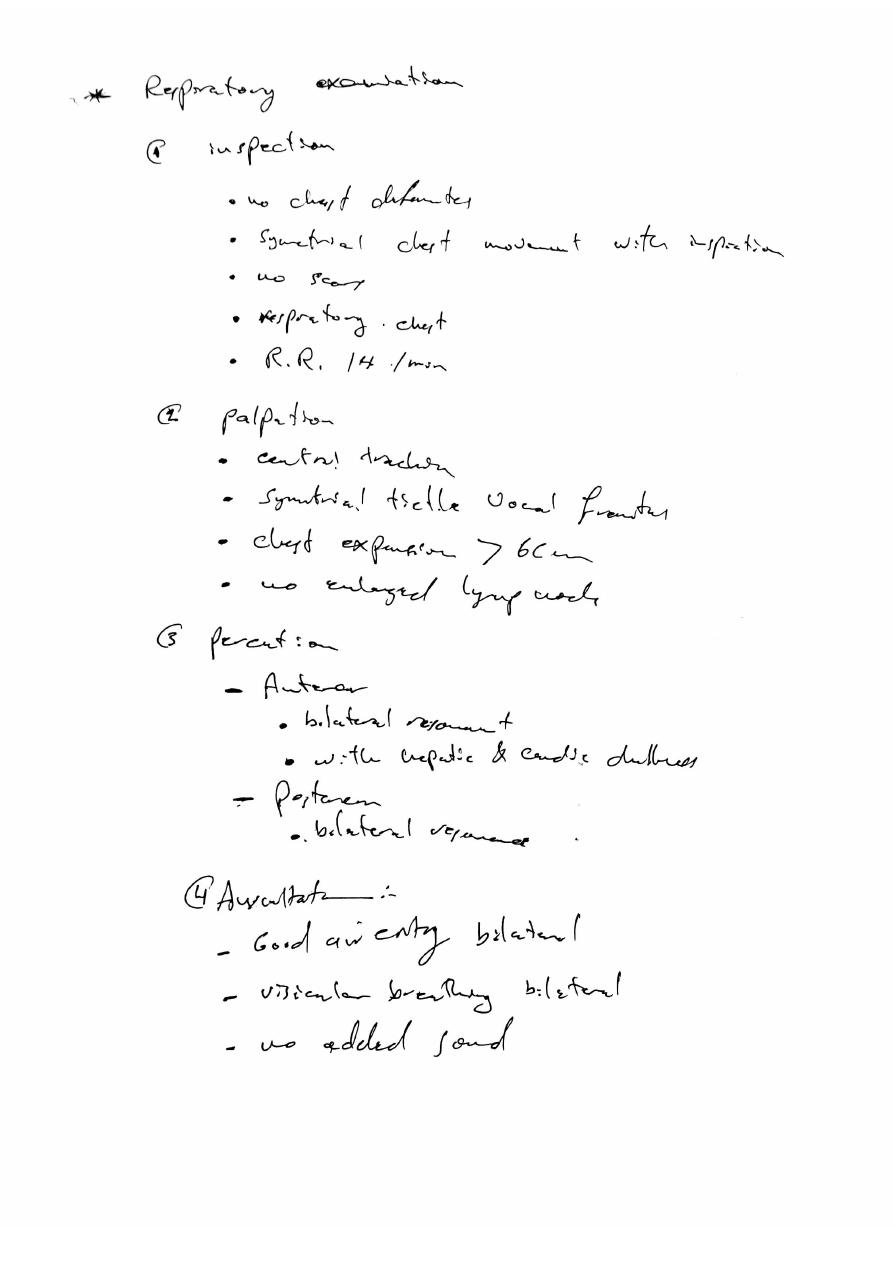 * Respiratory examination
① inspection
• no chest deformites
• symetrial chest movement with inspiration
• no scars
• respiratory . chest
• R.R. 14 /min
② palpation
• central trachea
• symetrial tactile vocal fremitus
• chest expansion > 6 cm
• no enlarged lymp nods
③ percution
- Anterior
• bilateral resonant
• with hepatic & cardic dullness
- Posterior
• bilateral resonance
④ Auscultation :-
- Good air entry bilateral
- visicular breathing bilateral
- no added sound